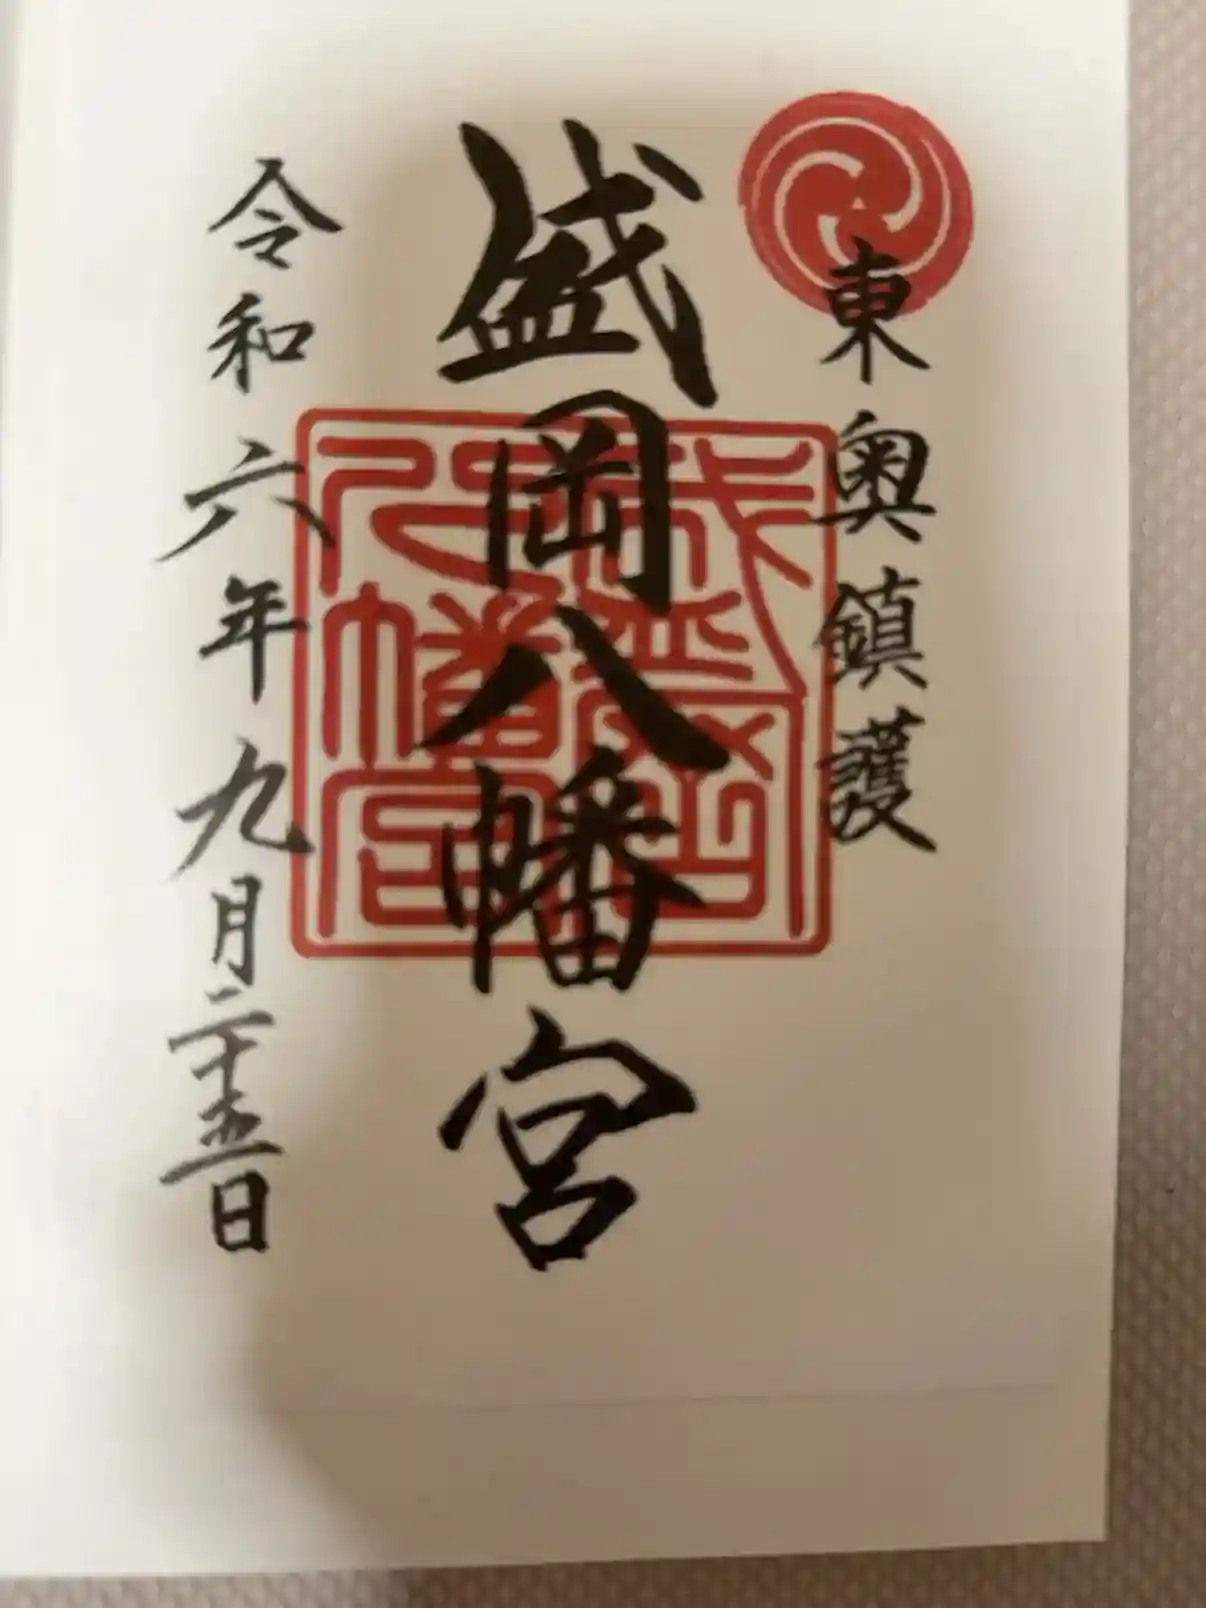 東奥鎮護
盛岡八幡宮
盛岡八幡宮
令和六年九月二十五日